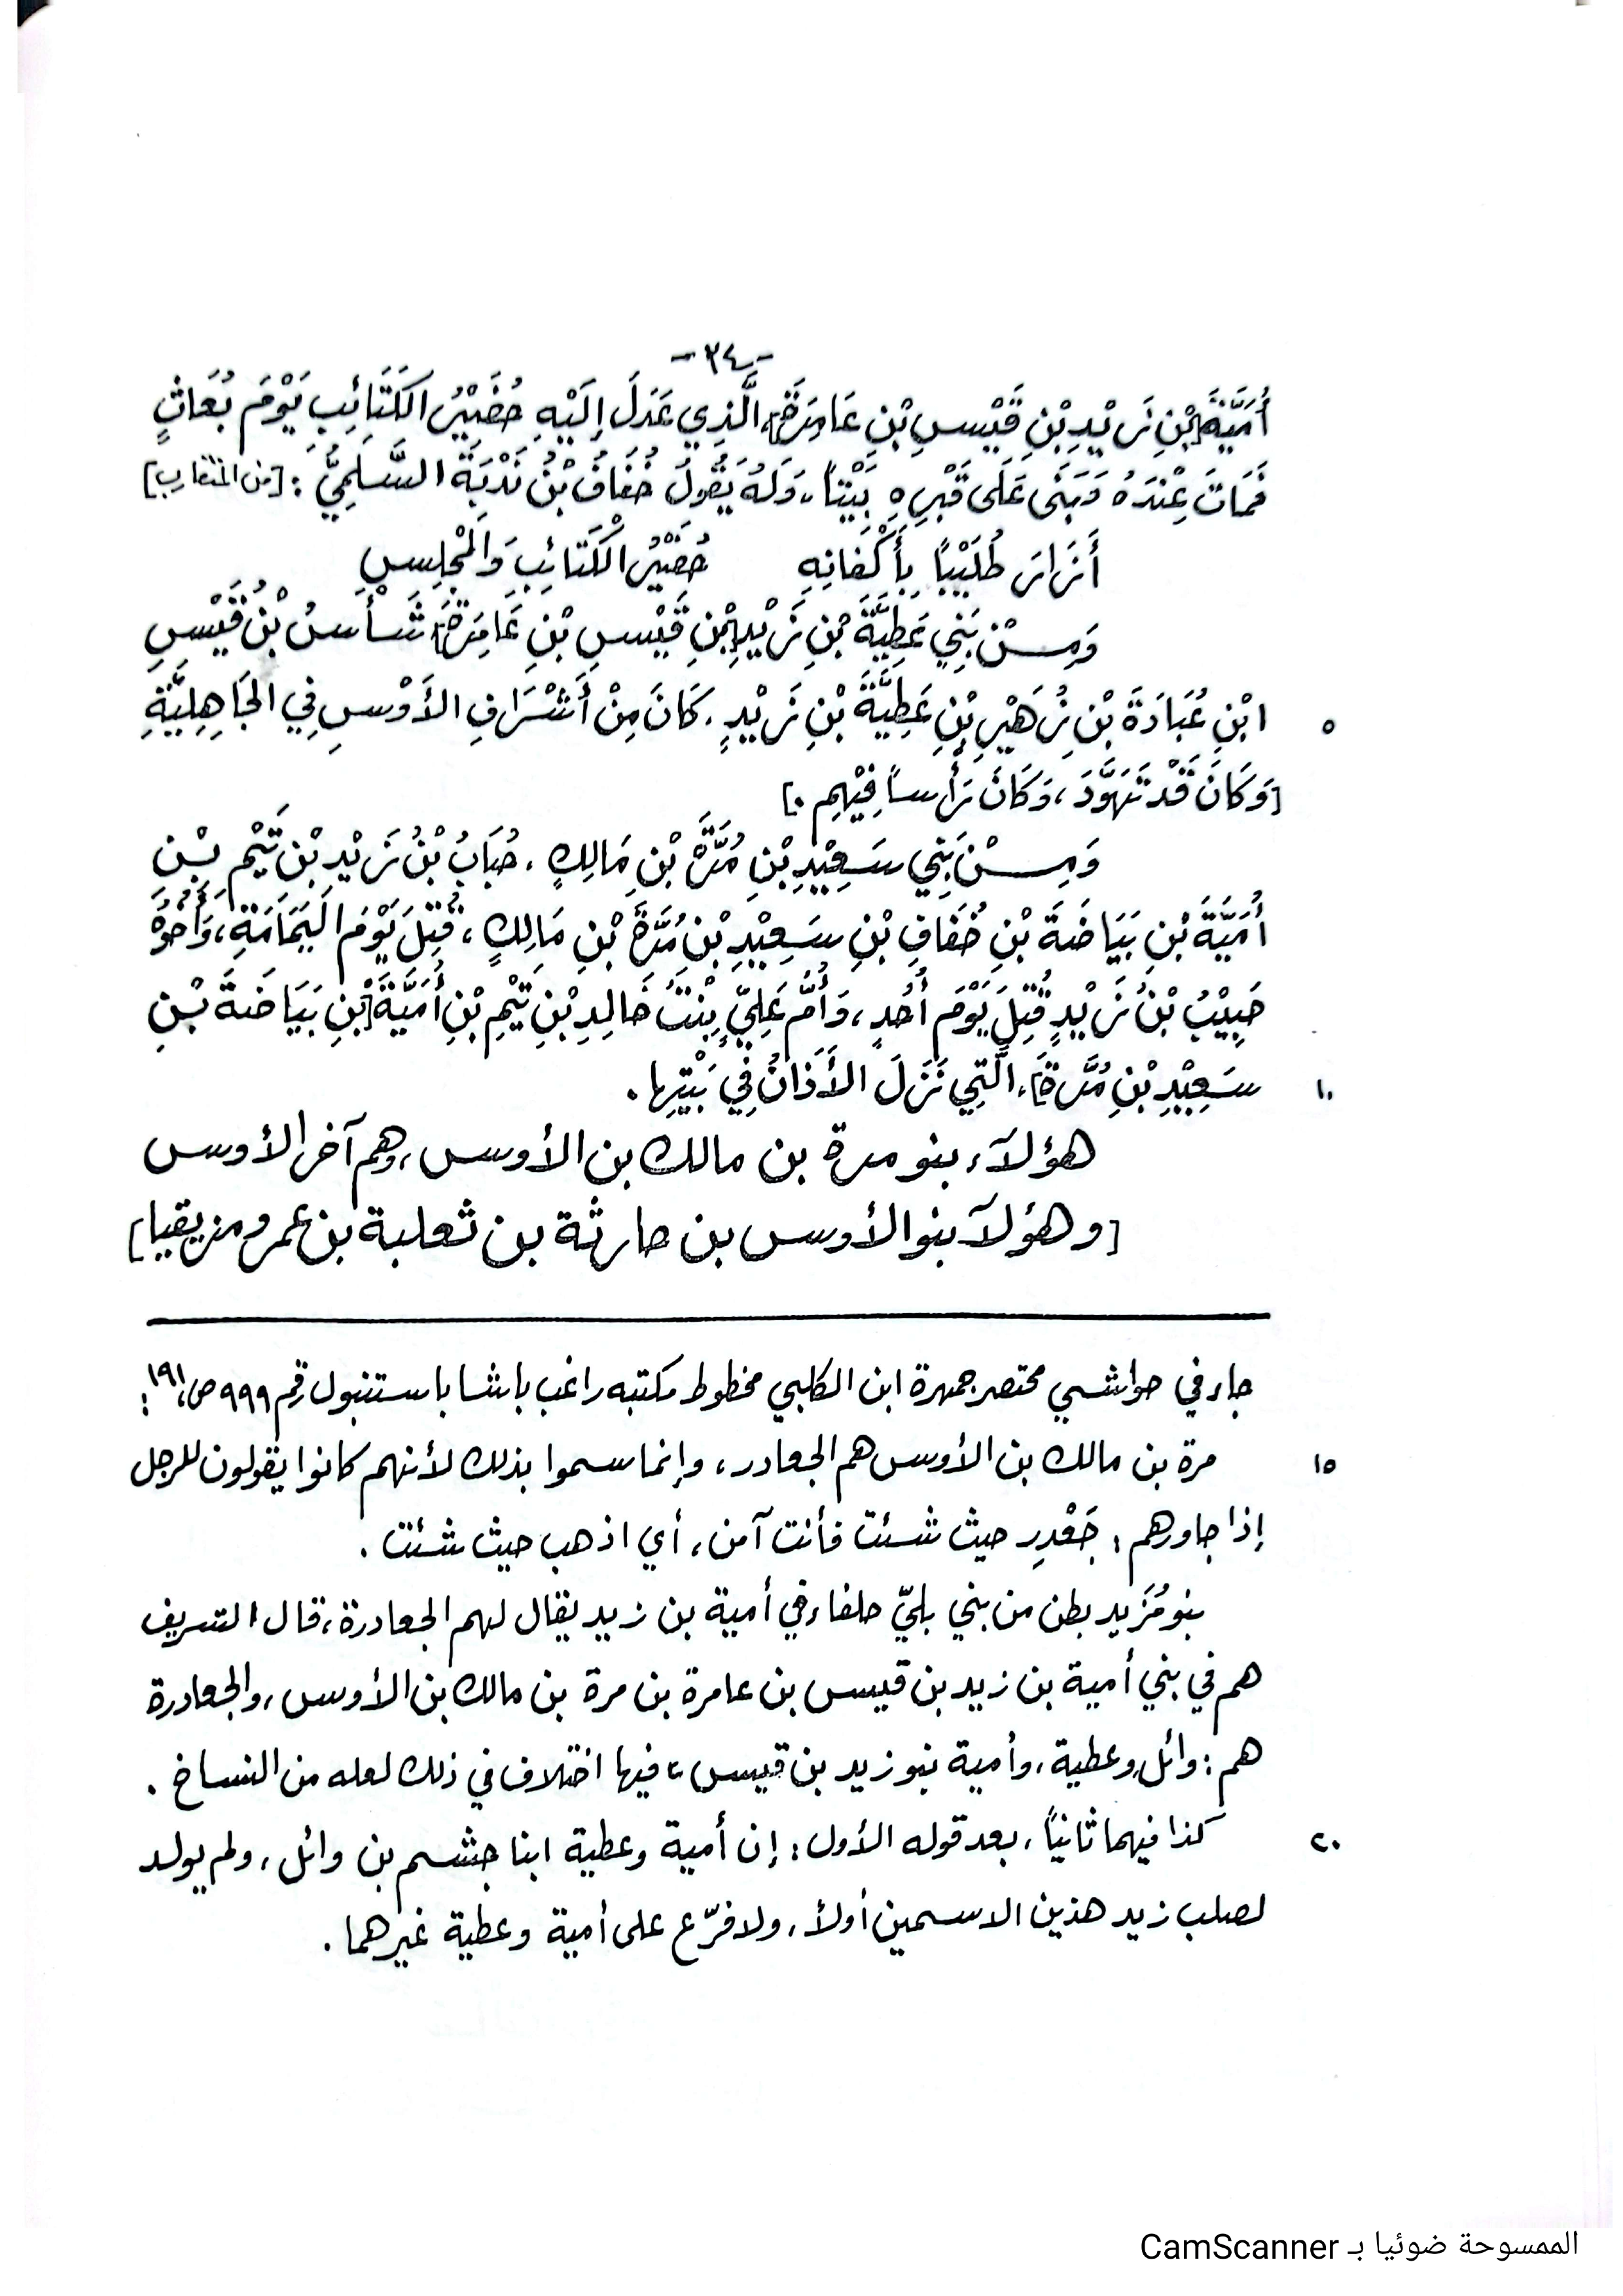 -٣٤-
أُمَيَّةَ [بْنِ زَيْدِ بْنِ قَيْسِ بْنِ عَامِرَةَ]، الَّذِي عَدَلَ إِلَيْهِ حُضَيْرُ الكَتَائِبِ يَوْمَ بُعَاثٍ
فَمَاتَ عِنْدَهُ وَبَنَى عَلَى قَبْرِهِ بَيْتاً، وَلَهُ يَقُولُ خُفَافُ بْنُ نَدْبَةَ السُّلَمِيُّ: [من المتقارب]
أَزَارَ طُلَيْبًا بِأَكْفَانِهِ حُضَيْرُ الْكَتَائِبِ وَالْمَجْلِسِ
وَمِنْ بَنِي عَطِيَّةَ بْنِ زَيْدِ [بْنِ قَيْسِ بْنِ عَامِرَةَ] شَأْسُ بْنُ قَيْسِ
٥ ابْنِ عُبَادَةَ بْنِ زُهَيْرِ بْنِ عَطِيَّةَ بْنِ زَيْدٍ، كَانَ مِنْ أَشْرَافِ الأَوْسِ فِي الجَاهِلِيَّةِ
[وَكَانَ قَدْ تَهَوَّدَ، وَكَانَ رَأْساً فِيْهِمِ.]
وَمِنْ بَنِي سَعِيْدِ بْنِ مُرَّةَ بْنِ مَالِكٍ، حُبَابُ بْنُ زَيْدِ بْنِ تَيْمِ بْنِ
أُمَيَّةَ بْنِ بَيَاضَةَ بْنِ خُفَافِ بْنِ سَعِيْدِ بْنِ مُرَّةَ بْنِ مَالِكٍ، قُتِلَ يَوْمَ اليَمَامَةِ، وَأَخُوْهُ
حَبِيْبُ بْنُ زَيْدٍ قُتِلَ يَوْمَ أُحُدٍ، وَأُمُّ عَلِيٍّ بِنْتُ خَالِدِ بْنِ تَيْمِ بْنِ أُمَيَّةَ [بْنِ بَيَاضَةَ بْنِ
١٠ سَعِيْدِ بْنِ مُرَّةَ]، الَّتِي نَزَلَ الأَذَانُ فِي بَيْتِهَا.
هؤلآء بنو مرة بن مالك بن الأوس، وهم آخر الأوس
[وهؤلآ بنو الأوس بن حارثة بن ثعلبة بن عمرو مزيقيا]
جاء في حواشي مختصر جمهرة ابن الكلبي مخطوط مكتبه راغب باشا باستنبول رقم ٩٩٩ ص، ١٩١:
١٥ مرة بن مالك بن الأوس هم الجعادر، وإنما سموا بذلك لأنهم كانوا يقولون للرجل
إذا جاورهم: جَعْدِر حيث شئت فأنت آمن، أي اذهب حيث شئت.
بنو مُزَيد بطن من بني بليّ حلفاء في أمية بن زيد يقال لهم الجعادرة، قال الشريف
هم في بني أمية بن زيد بن قيس بن عامرة بن مرة بن مالك بن الأوس، والجعادرة
هم: وائل وعطية، وأمية بنو زيد بن قيس، فيها اختلاف في ذلك لعله من النساخ.
٢٠ كذا فيهما ثانياً، بعد قوله الأول: إن أمية وعطية ابنا جشم بن وائل، ولم يولد
لصلب زيد هذين الاسمين أولاً، ولا فرّع على أمية وعطية غيرهما.
الممسوحة ضوئيا بـ CamScanner